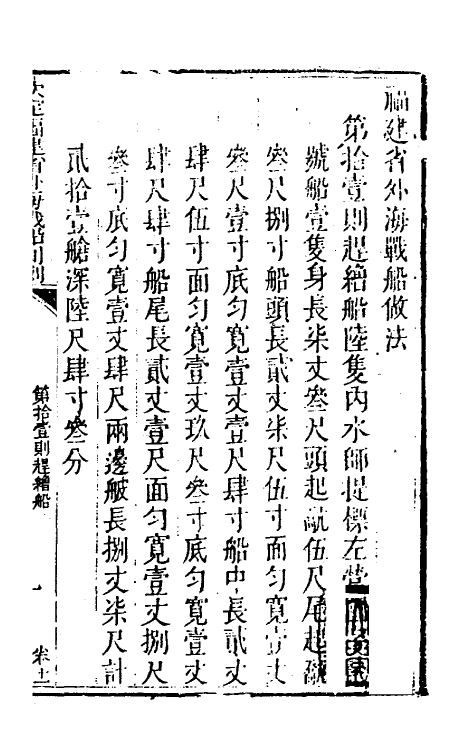 福建省外海戰船做法
第拾壹則趕繒船陸隻內水師提標左營
號船壹隻身長柒丈叁尺頭起𦨖伍尺尾起𦨖
叁尺捌寸船頭長貳丈柒尺伍寸面勻寬壹丈
叁尺壹寸底勻寬壹丈壹尺肆寸船中長貳丈
肆尺伍寸面勻寬壹丈玖尺叁寸底勻寬壹丈
肆尺肆寸船尾長貳丈壹尺面勻寬壹丈捌尺
叁寸底勻寬壹丈肆尺兩邊𦪙長捌丈柒尺計
貳拾壹艙深陸尺肆寸叁分
欽定福建省外海戰船則例
第拾壹則趕繒船
一
卷十一